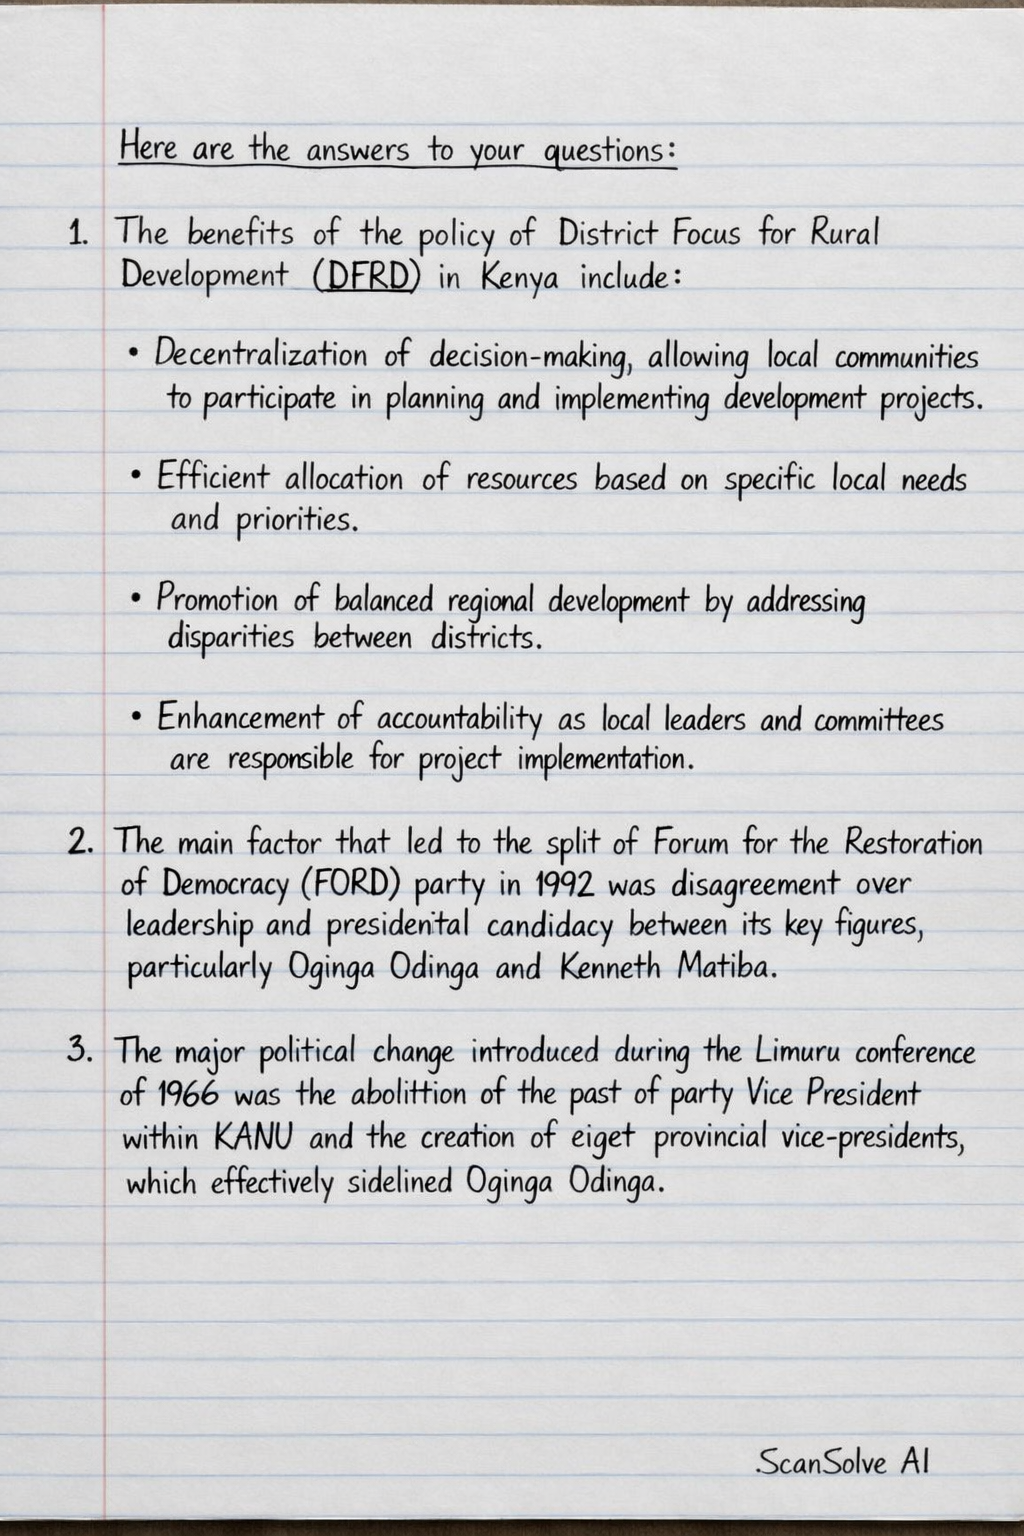 Here are the answers to your questions:
1. The benefits of the policy of District Focus for Rural
Development (DFRD) in Kenya include:
• Decentralization of decision-making, allowing local communities
to participate in planning and implementing development projects.
• Efficient allocation of resources based on specific local needs
and priorities.
• Promotion of balanced regional development by addressing
disparities between districts.
• Enhancement of accountability as local leaders and committees
are responsible for project implementation.
2. The main factor that led to the split of Forum for the Restoration
of Democracy (FORD) party in 1992 was disagreement over
leadership and presidental candidacy between its key figures,
particularly Oginga Odinga and Kenneth Matiba.
3. The major political change introduced during the Limuru conference
of 1966 was the abolittion of the past of party Vice President
within KANU and the creation of eiget provincial vice-presidents,
which effectively sidelined Oginga Odinga.
.ScanSolve AI